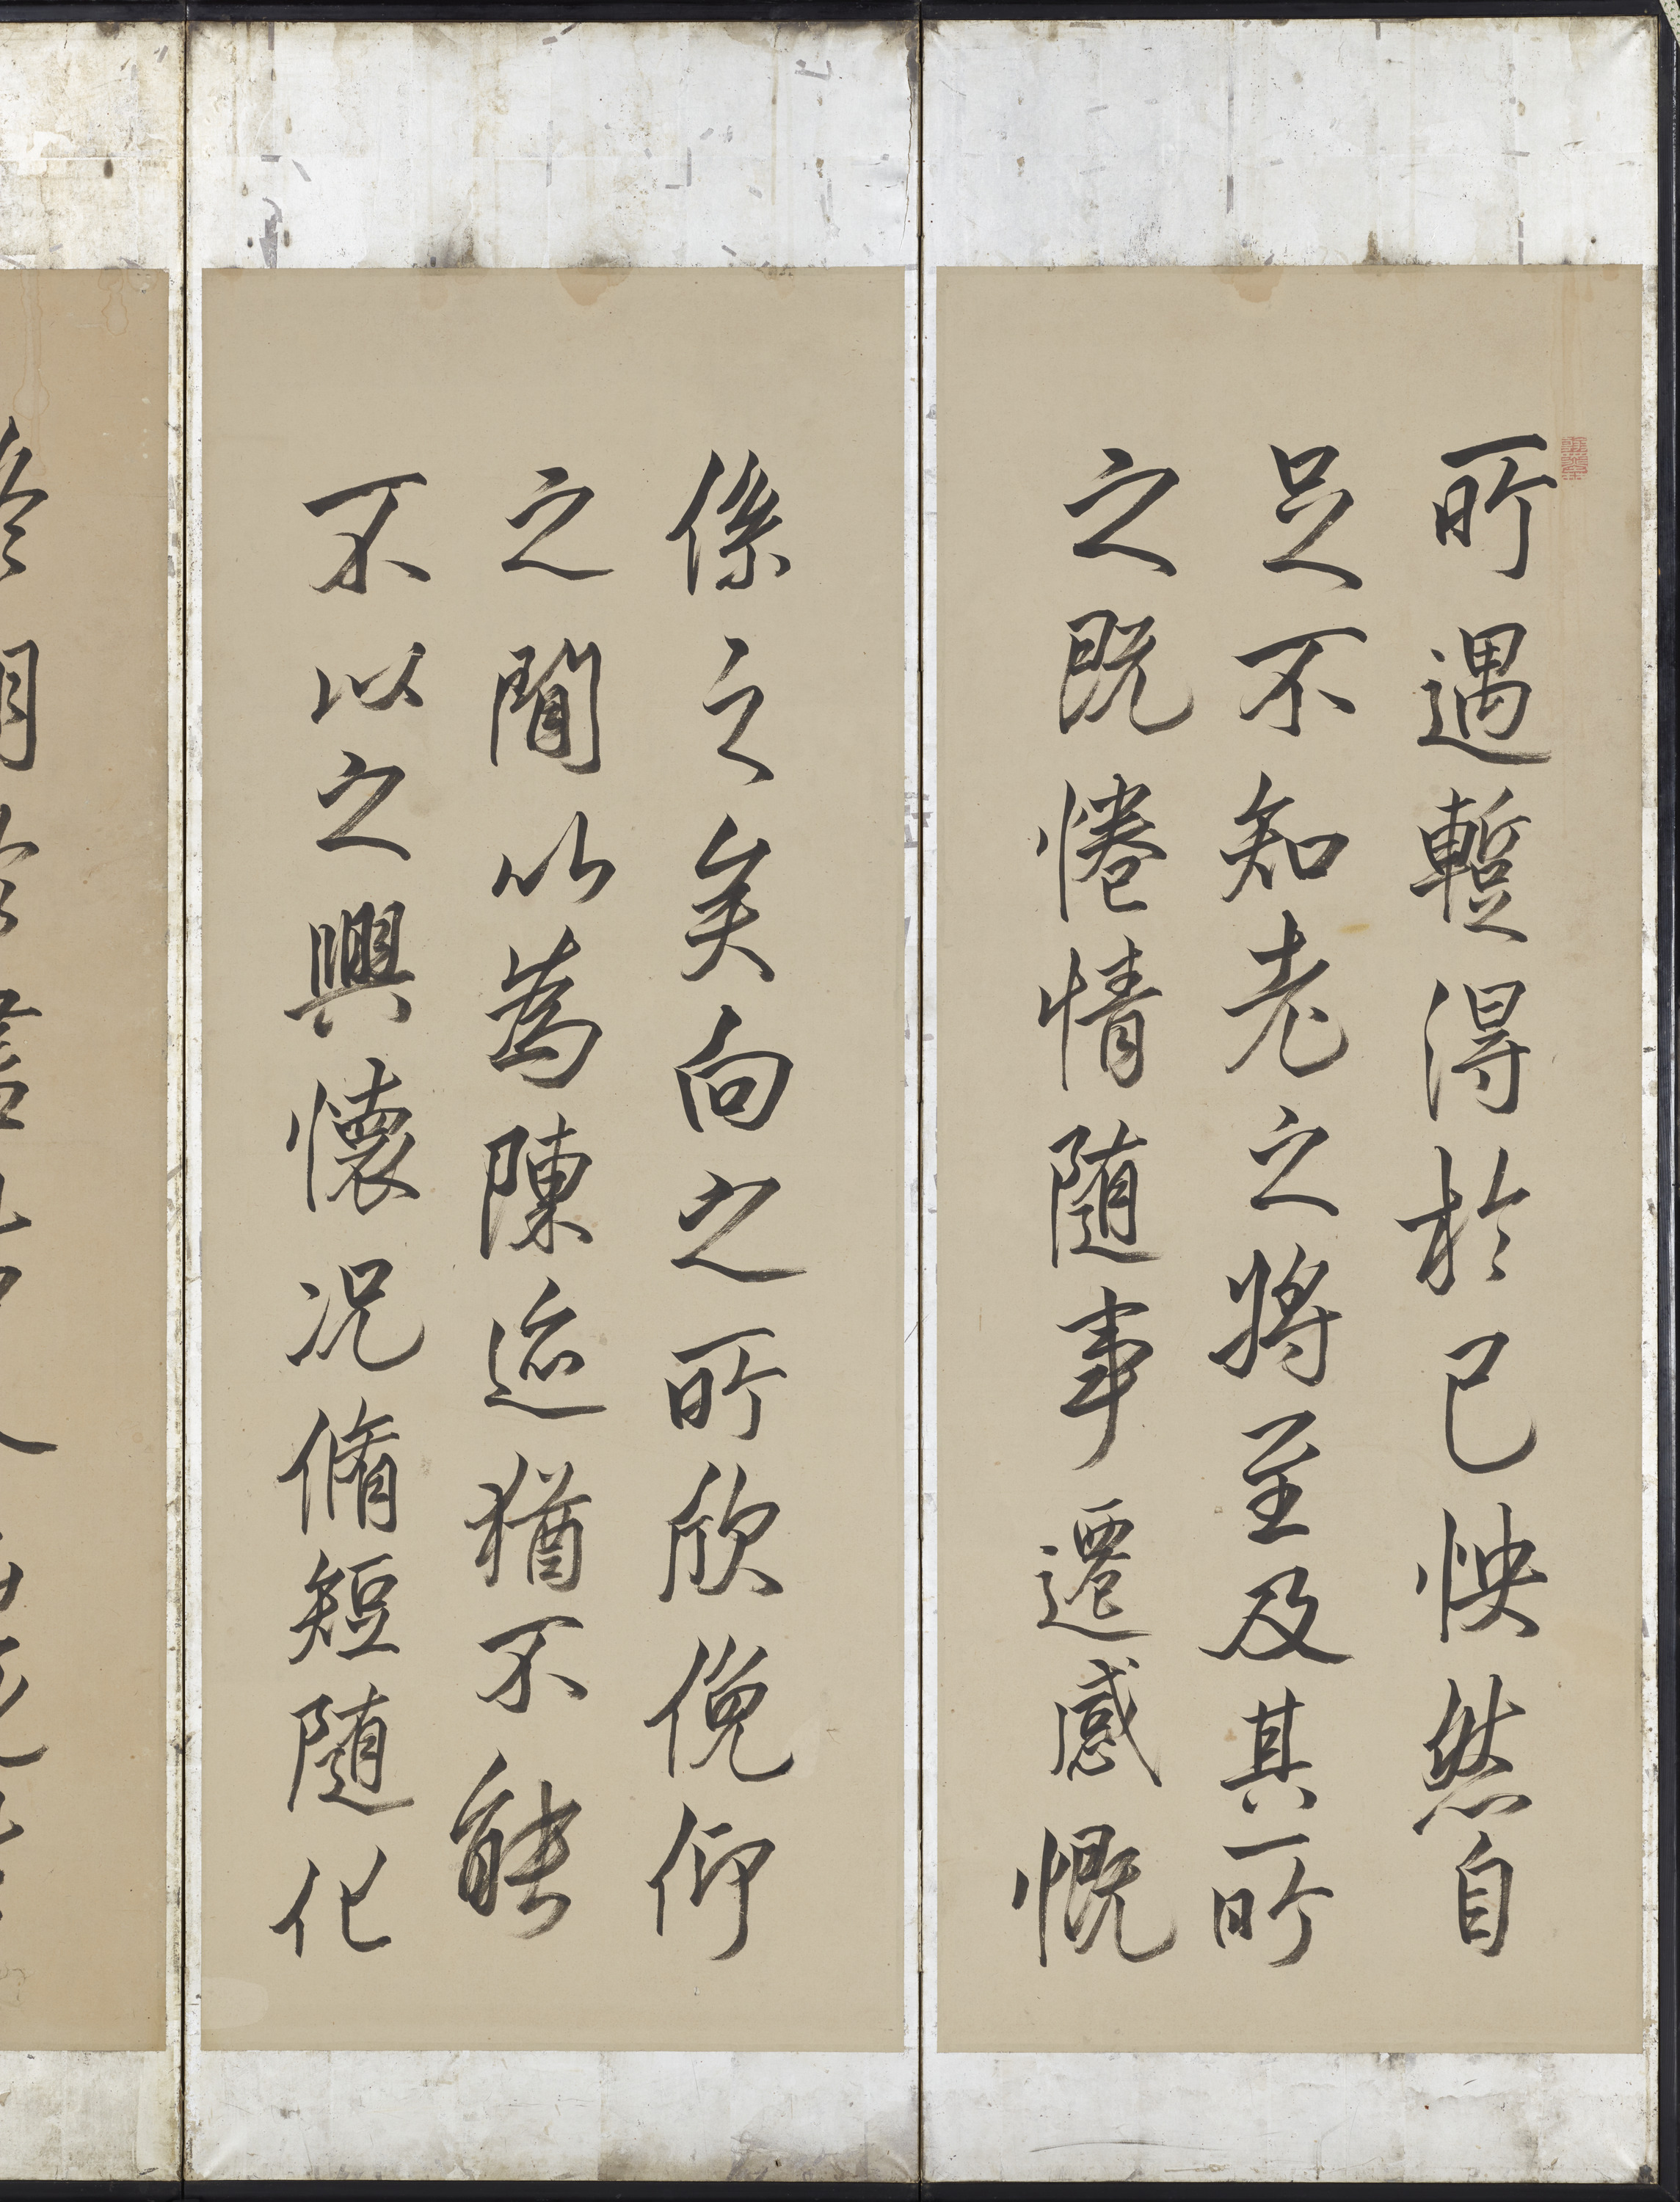 所遇暫得於己怏然自
足不知老之將至及其所
之既惓情随事遷感慨
係之矣向之所欣俛仰
之間以為陳迹猶不能
不以之興懷况脩短随化